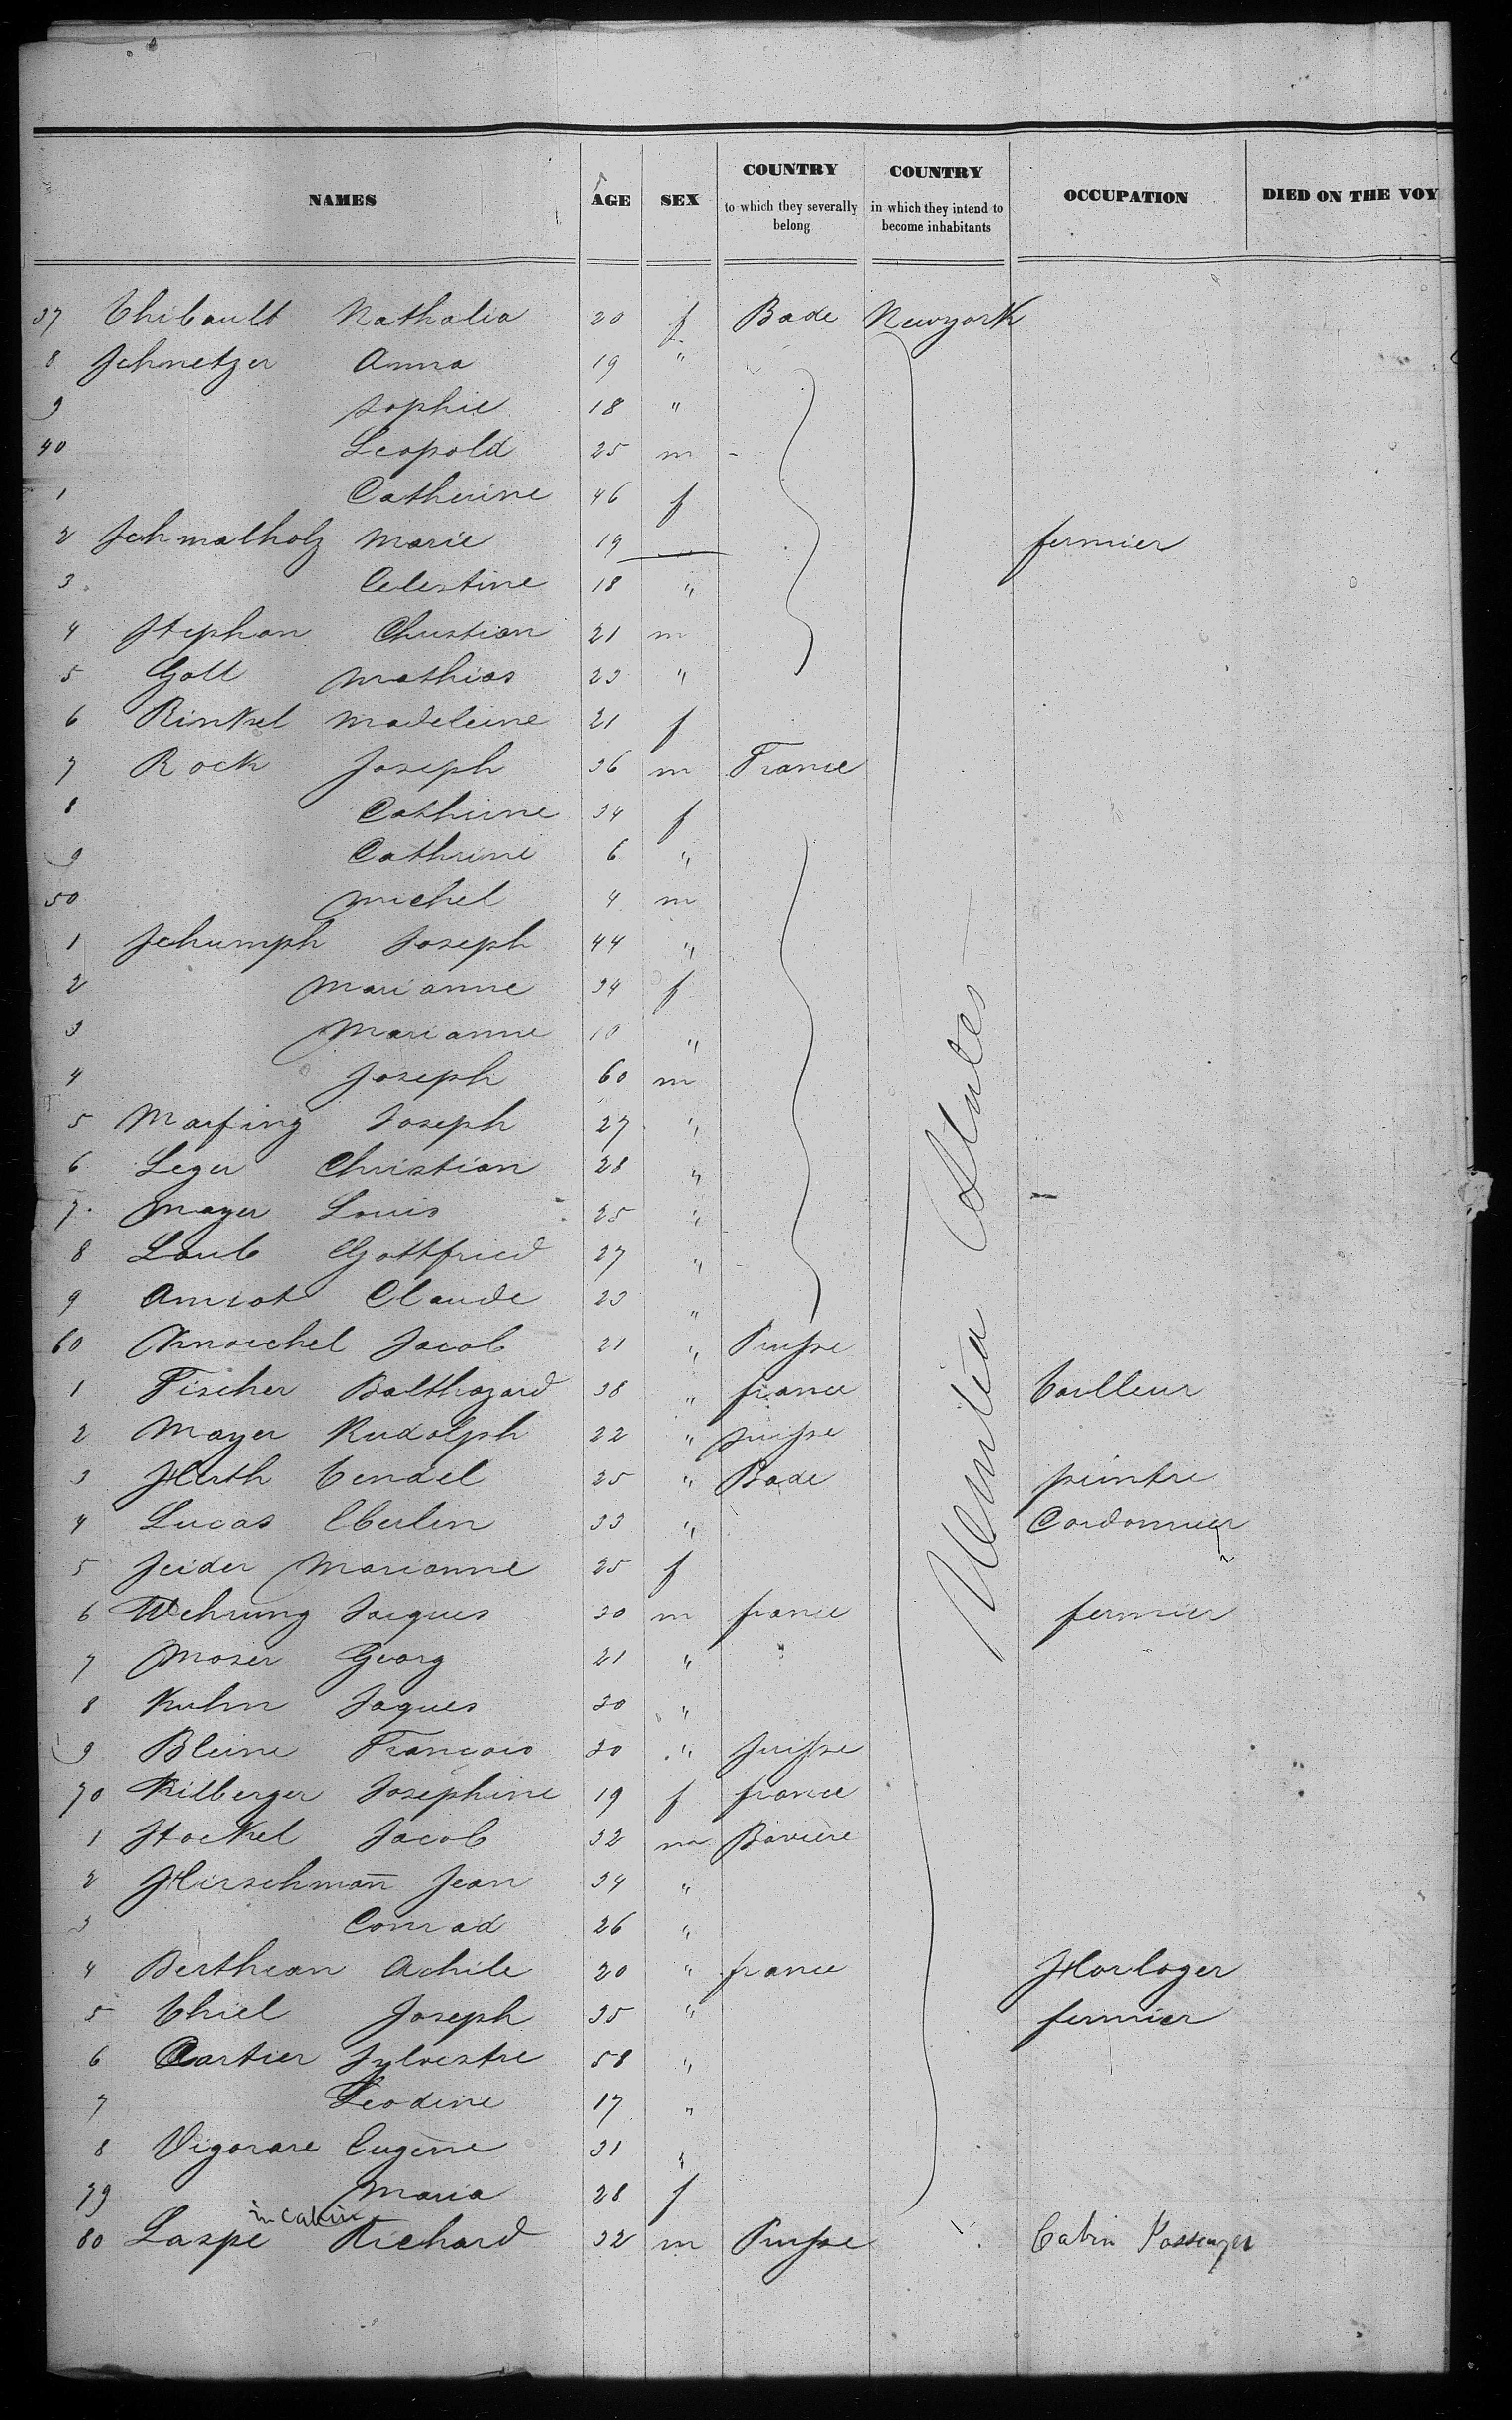 NAMES AGE SEX COUNTRY to which they severally belong COUNTRY in which they intend to become inhabitants OCCUPATION DIED ON THE VOY
37 Thibault Nathalia 20 f Bade Newyork
8 Schmetzer Anna 19 "
9 Sophie 18 "
40 Leopold 25 m -
1 Catherine 46 f
2 Schmalholz Marie 19 — fermier
3 Celestine 18 "
4 Stephan Christian 21 m
5 Goll Mathias 23 "
6 Rinkel Madeleine 21 f
7 Rock Joseph 36 m France
8 Cathirine 34 f
9 Cathrine 6 "
50 Michel 4 m
1 Schumph Joseph 44 "
2 Marianne 34 f
3 Marianne 10 "
4 Joseph 60 m
5 Marfing Joseph 27 "
6 Leger Christian 28 "
7 Mayer Louis 25 "
8 Laub Gottfried 27 "
9 Amiot Claude 23 "
60 Knoechel Jacob 21 " Prusse
1 Fischer Balthazard 38 " france Tailleur
2 Mayer Rudolph 22 " Suisse
3 Hirth Tendel 25 " Bade peintre
4 Lucas Eberlin 33 " Cordonnier
5 Seider Marianne 25 f
6 Wehrung Jacques 30 m france fermier
7 Moser Georg 21 "
8 Kuhn Jaques 30 "
9 Bleine François 30 " Suisse
70 Kilberger Josephine 19 f france
1 Stockel Jacob 32 m Baviere
2 Hirschmañ Jean 34 "
3 Conrad 26 "
4 Berthean Achile 20 " france Horloger
5 Thiel Joseph 35 " fermier
6 Cartier Sylvestre 58 "
7 Leodine 17 "
8 Vigorare Eugene 31 "
79 Maria 28 f
in Cabin
80 Laspe Richard 32 m Prusse Cabin Passenger
United States